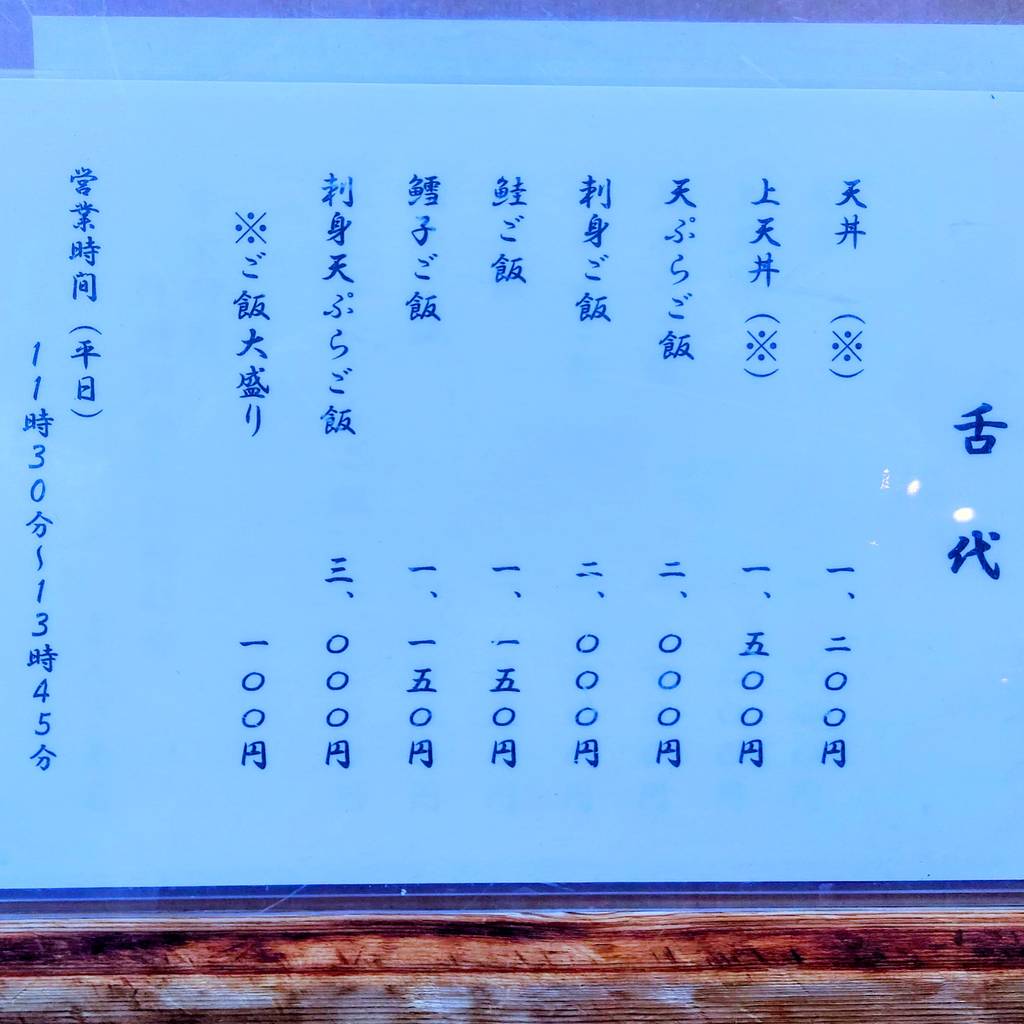 舌代
天丼 (※) 一、二〇〇円
上天丼 (※) 一、五〇〇円
天ぷらご飯 二、〇〇〇円
刺身ご飯 二、〇〇〇円
鮭ご飯 一、一五〇円
鱈子ご飯 一、一五〇円
刺身天ぷらご飯 三、〇〇〇円
※ご飯大盛り 一〇〇円
営業時間 (平日)
11時30分~13時45分